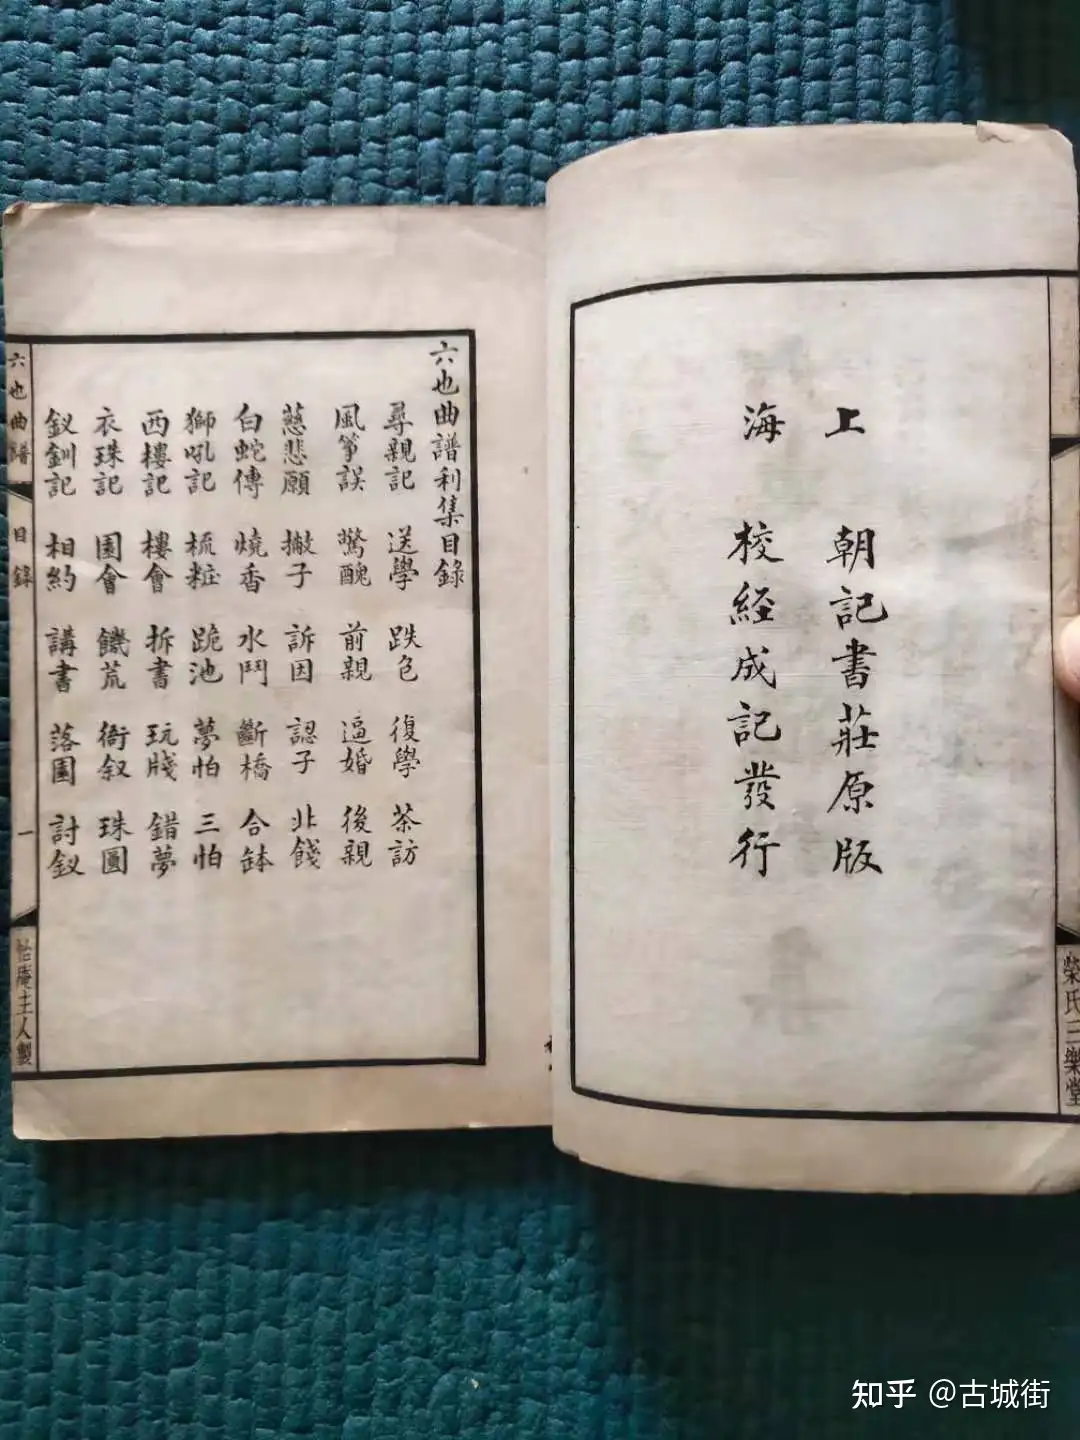 上海
朝記書莊原版
校經成記發行
榮氏三樂堂
六也曲譜利集目錄
尋親記 送學 跌包 復學 茶訪
風箏誤 驚醜 前親 逼婚 後親
慈悲願 撇子 訴因 認子 北餞
白蛇傳 燒香 水鬥 斷橋 合缽
獅吼記 梳粧 跪池 夢怕 三怕
西樓記 樓會 拆書 玩牋 錯夢
衣珠記 園會 饑荒 衙叙 珠圓
釵釧記 相約 講書 落園 討釵
六也曲譜 目錄 一 怡庵主人製
知乎 @古城街